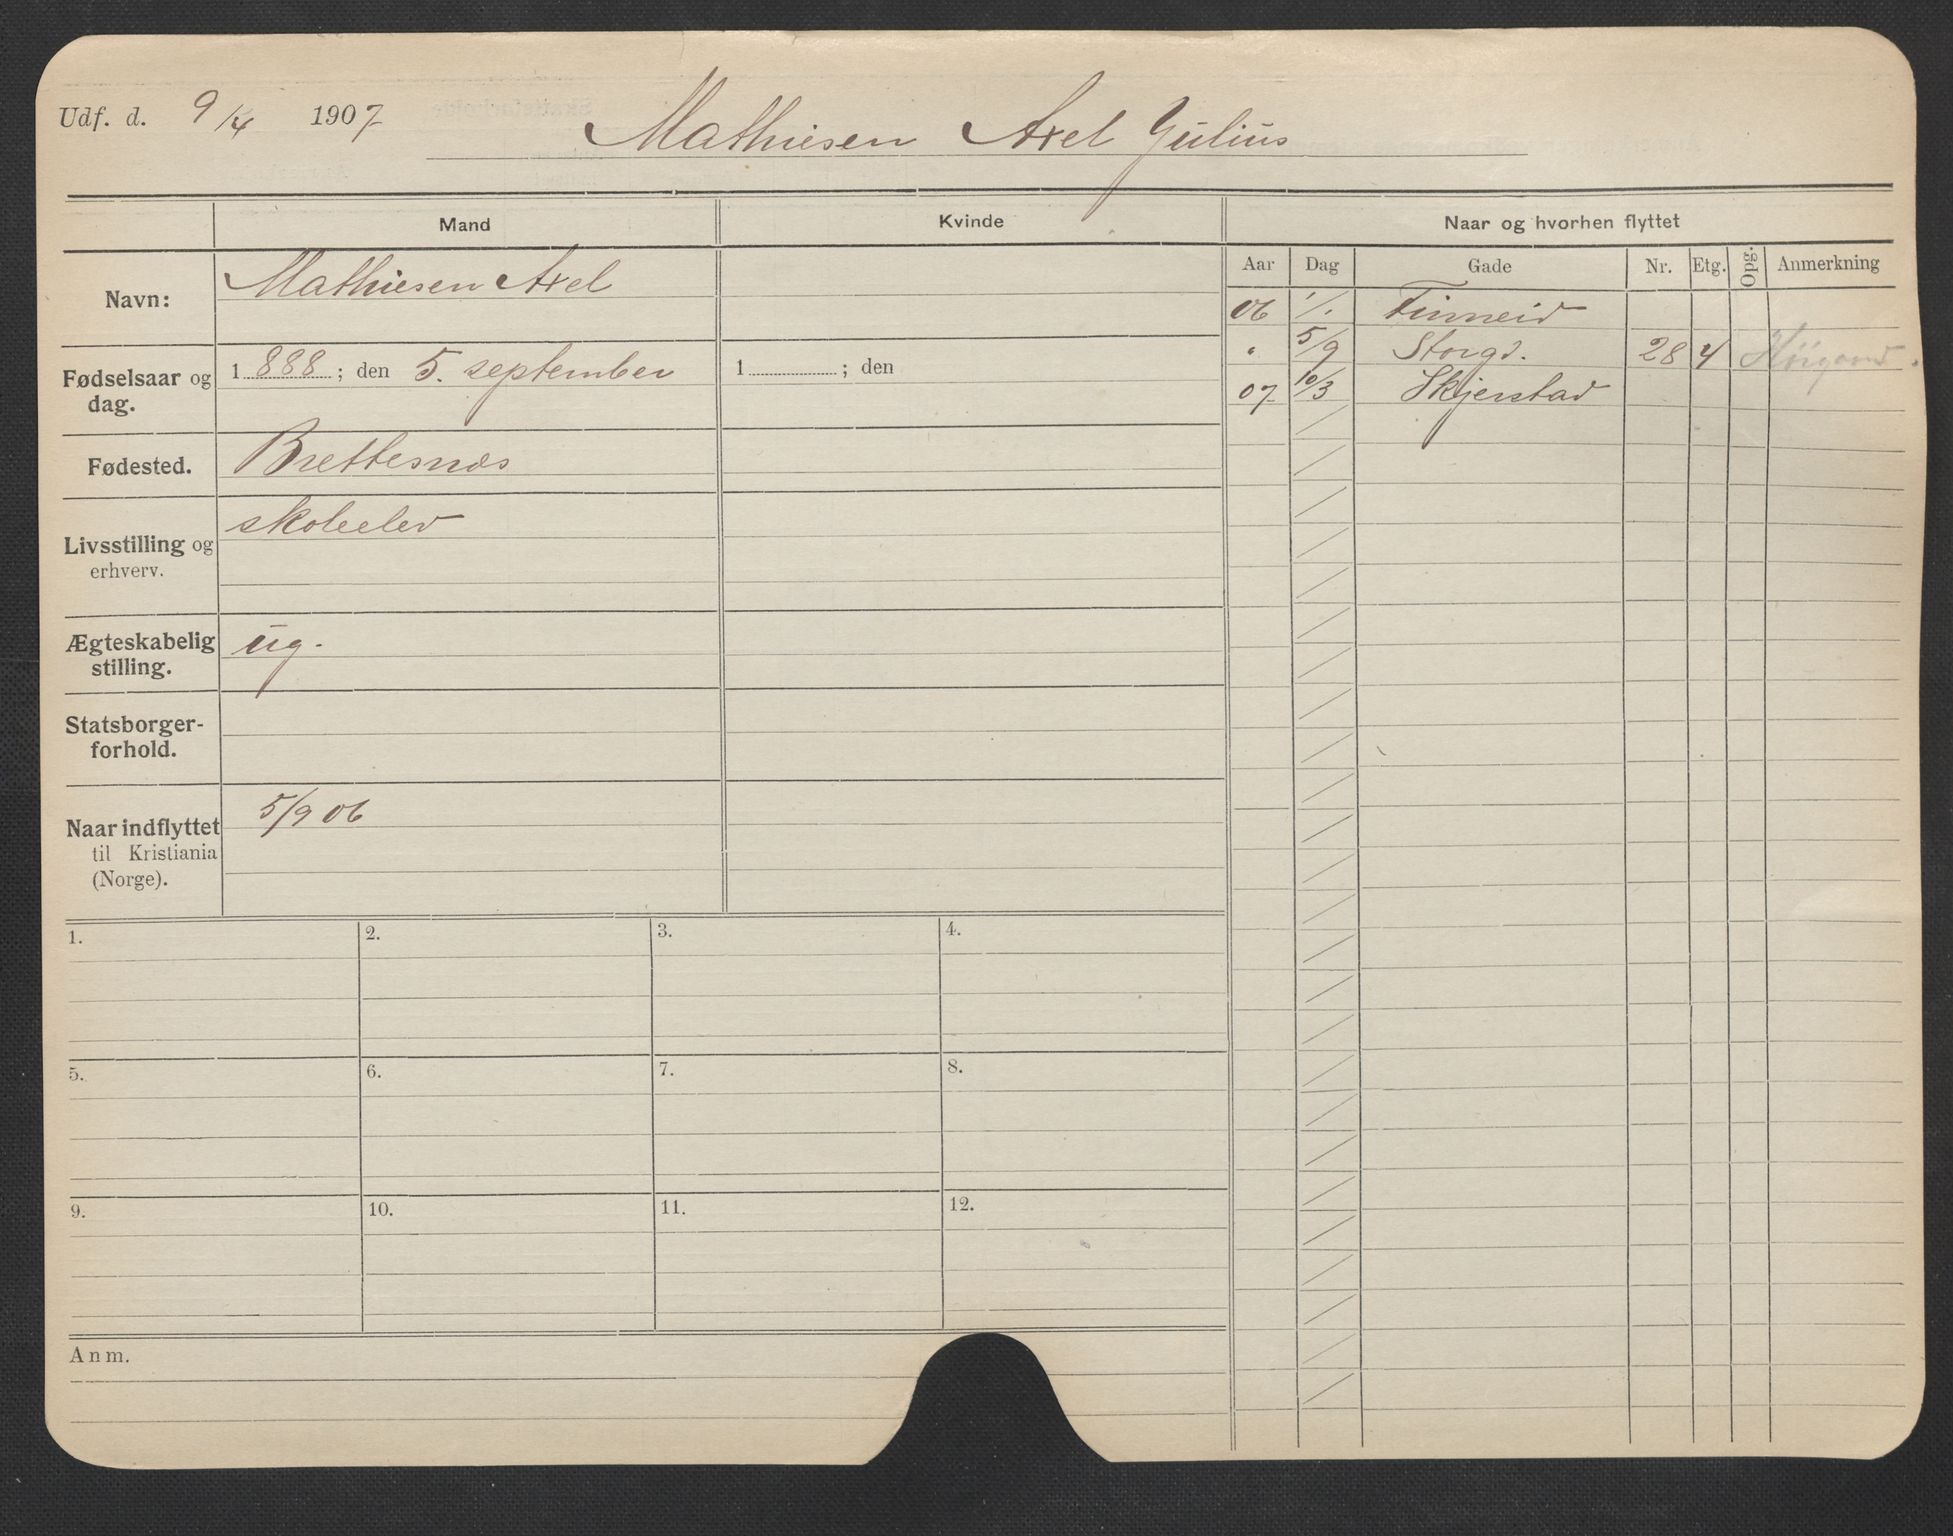 Udf. d. 9/4 1907
Mathiesen Axel Julius
Mand
Kvinde
Naar og hvorhen flyttet
Aar Dag Gade Nr. Etg. Opg. Anmerkning
Navn: Mathiesen Axel
Fødselsaar og dag. 1 888 ; den 5. september
1 ; den
Fødested. Brettesnæs
Livsstilling og erhverv. skoleelev
Ægteskabelig stilling. ug.
Statsborger-
forhold.
Naar indflyttet til Kristiania (Norge). 5/9 06
06 1/. Finneid
" 5/9 Storgd. 28 4
07 10/3 Skjerstad
1. 2. 3. 4.
5. 6. 7. 8.
9. 10. 11. 12.
Anm.